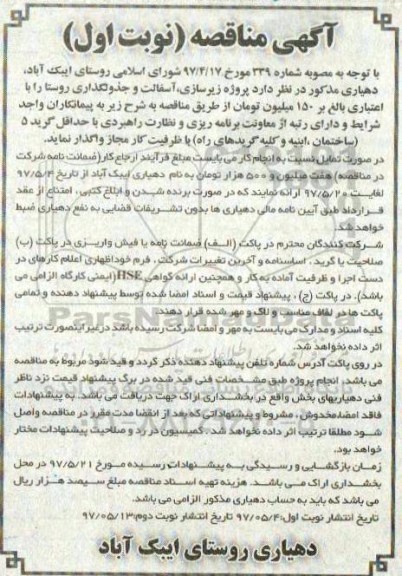 آگهی مناقصه (نوبت اول)
با توجه به مصوبه شماره ۳۳۹ مورخ ۹۷/۴/۱۷ شورای اسلامی روستای ایبک آباد،
دهیاری مذکور در نظر دارد پروژه زیرسازی، آسفالت و جدولگذاری روستا را با
اعتباری بالغ بر ۱۵۰ میلیون تومان از طریق مناقصه به شرح زیر به پیمانکاران واجد
شرایط و دارای رتبه از معاونت برنامه ریزی و نظارت راهبردی با حداقل گرید ۵
(ساختمان، ابنیه و کلیه گریدهای راه) با ظرفیت کار مجاز واگذار نماید.
در صورت تمایل نسبت به انجام کار می بایست مبلغ فرآیند ارجاع کار (ضمانت نامه شرکت
در مناقصه) هفت میلیون و ۵۰۰ هزار تومان به نام دهیاری ایبک آباد از تاریخ ۹۷/۵/۴
لغایت ۹۷/۵/۲۰ ارائه نمایند که در صورت برنده شدن و ابلاغ کتبی، امتناع از عقد
قرارداد طبق آیین نامه مالی دهیاری ها بدون تشریفات قضایی به نفع دهیاری ضبط
خواهد شد.
شرکت کنندگان محترم در پاکت (الف) ضمانت نامه یا فیش واریزی در پاکت (ب)
صلاحیت یا گرید، اساسنامه و آخرین تغییرات شرکت، فرم خوداظهاری اعلام کارهای در
دست اجرا و ظرفیت آماده به کار و همچنین ارائه گواهی HSE (ایمنی کارگاه الزامی می
باشد). در پاکت (ج)، پیشنهاد قیمت و اسناد امضا شده توسط پیشنهاد دهنده و تمامی
پاکت ها در لفاف مناسب و لاک و مهر شده قرار دهند.
کلیه اسناد و مدارک می بایست به مهر و امضا شرکت رسیده باشد در غیر اینصورت ترتیب
اثر داده نخواهد شد.
در روی پاکت آدرس شماره تلفن پیشنهاد دهنده ذکر گردد و قید شود مربوط به مناقصه
می باشد. انجام پروژه طبق مشخصات فنی قید شده در برگ پیشنهاد قیمت نزد ناظر
فنی دهیاریهای بخش واقع در بخشداری اراک جهت دریافت می باشد. به پیشنهادات
فاقد امضا، مخدوش، مشروط و پیشنهاداتی که بعد از انقضا مدت مقرر در مناقصه واصل
شود مطلقا ترتیب اثر داده نخواهد شد. کمیسیون در رد و صلاحیت پیشنهادات مختار
خواهد بود.
زمان بازگشایی و رسیدگی به پیشنهادات رسیده مورخ ۹۷/۵/۲۱ در محل
بخشداری اراک می باشد. هزینه تهیه اسناد مناقصه مبلغ سیصد هزار ریال
می باشد که باید به حساب دهیاری مذکور الزامی می باشد.
تاریخ انتشار نوبت اول: ۹۷/۰۵/۴ تاریخ انتشار نوبت دوم: ۹۷/۰۵/۱۳
دهیاری روستای ایبک آباد